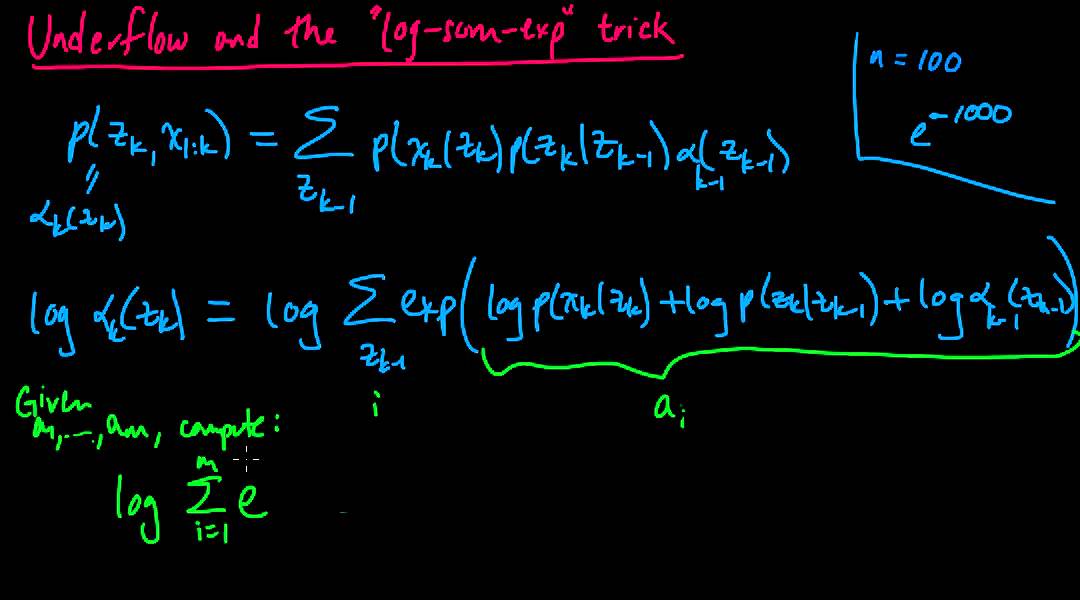 Underflow and the "log-sum-exp" trick
n = 100
e^{-1000}
p(z_k, x_{1:k}) = Σ_{z_{k-1}} p(x_k|z_k) p(z_k|z_{k-1}) α_{k-1}(z_{k-1})
=
α_k(z_k)
log α_k(z_k) = log Σ_{z_{k-1}} exp(log p(x_k|z_k) + log p(z_k|z_{k-1}) + log α_{k-1}(z_{k-1}))
i a_i
Given
a_1, ..., a_m, compute:
log Σ_{i=1}^{m} e